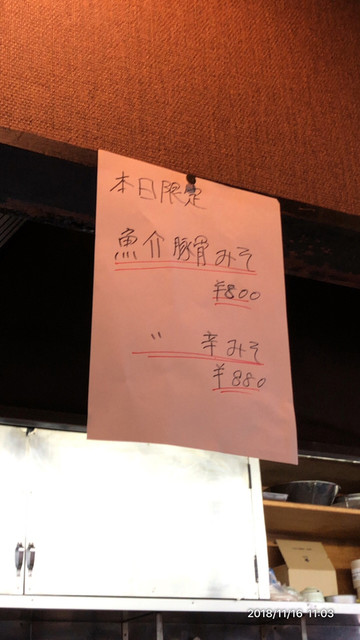 本日限定
魚介豚骨みそ
¥800
〃 辛みそ
¥880
2018/11/16 11:03